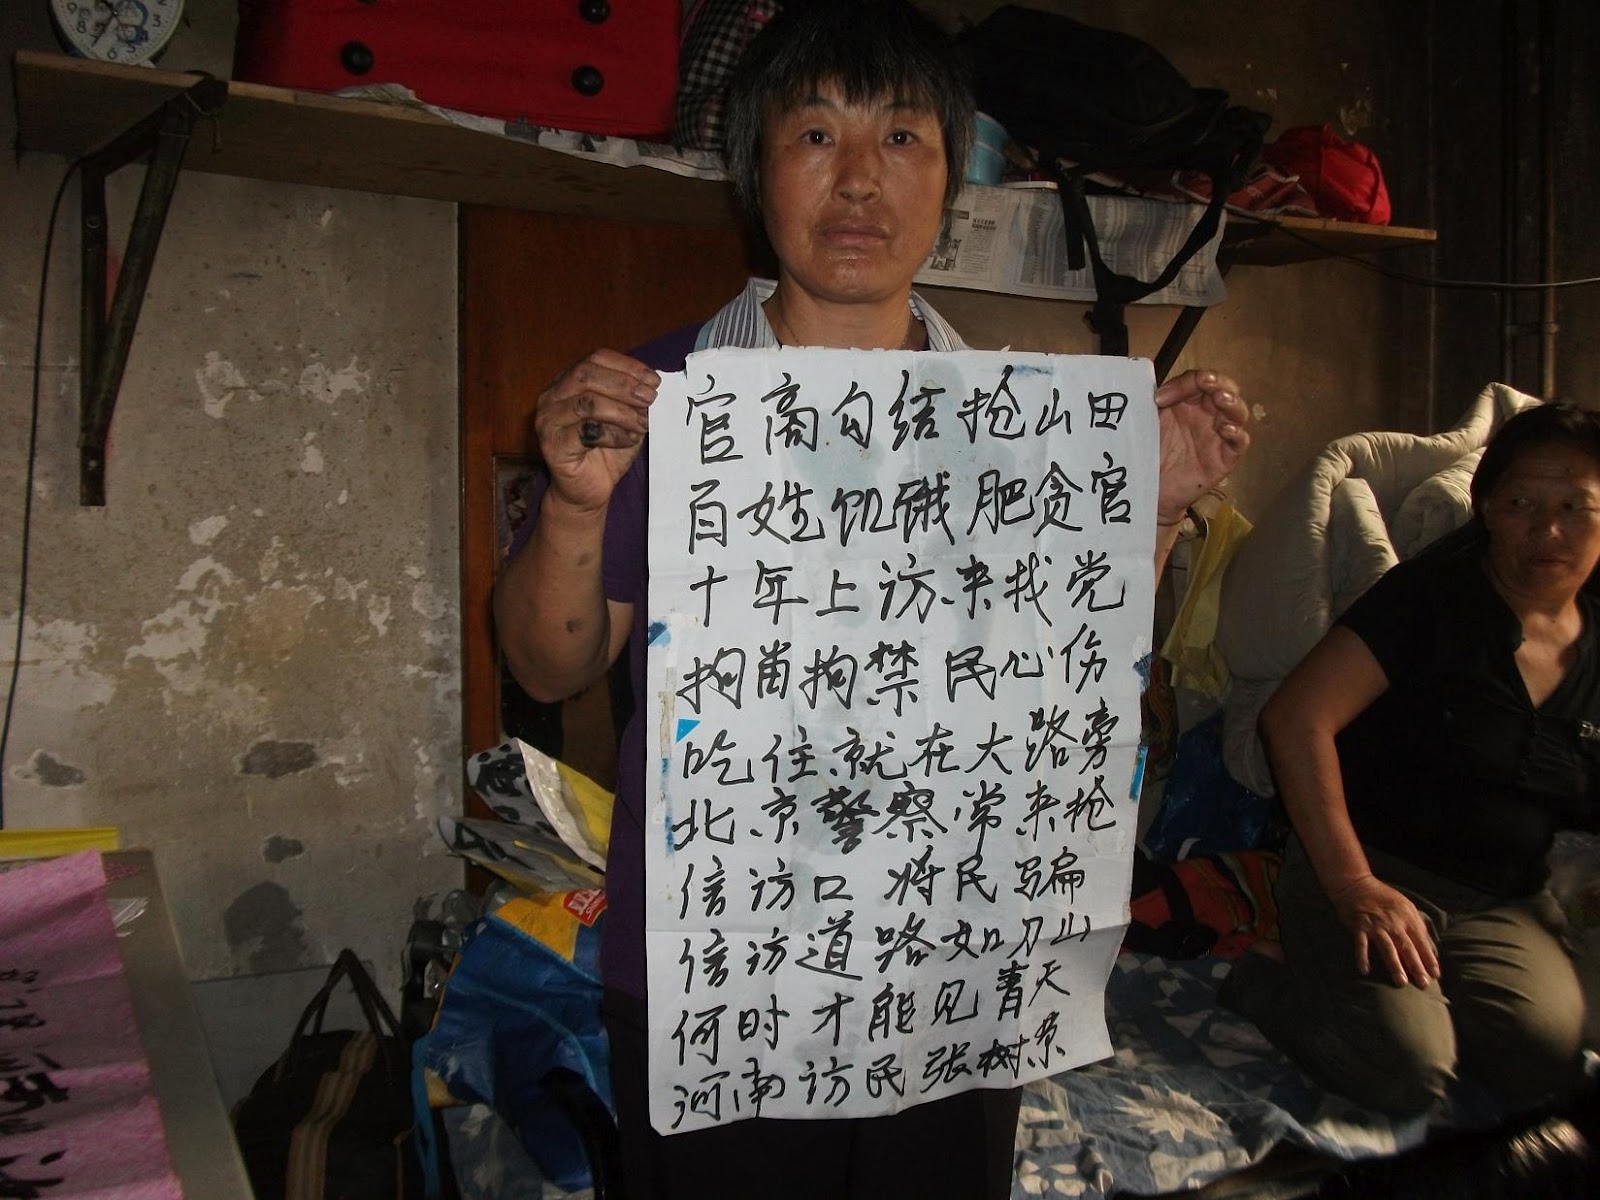 官商勾结抢山田
百姓饥饿肥贪官
十年上访来找党
拘留拘禁民心伤
吃住就在大路旁
北京警察常来抢
信访口将民骗
信访道路如刀山
何时才能见青天
河南访民张树景